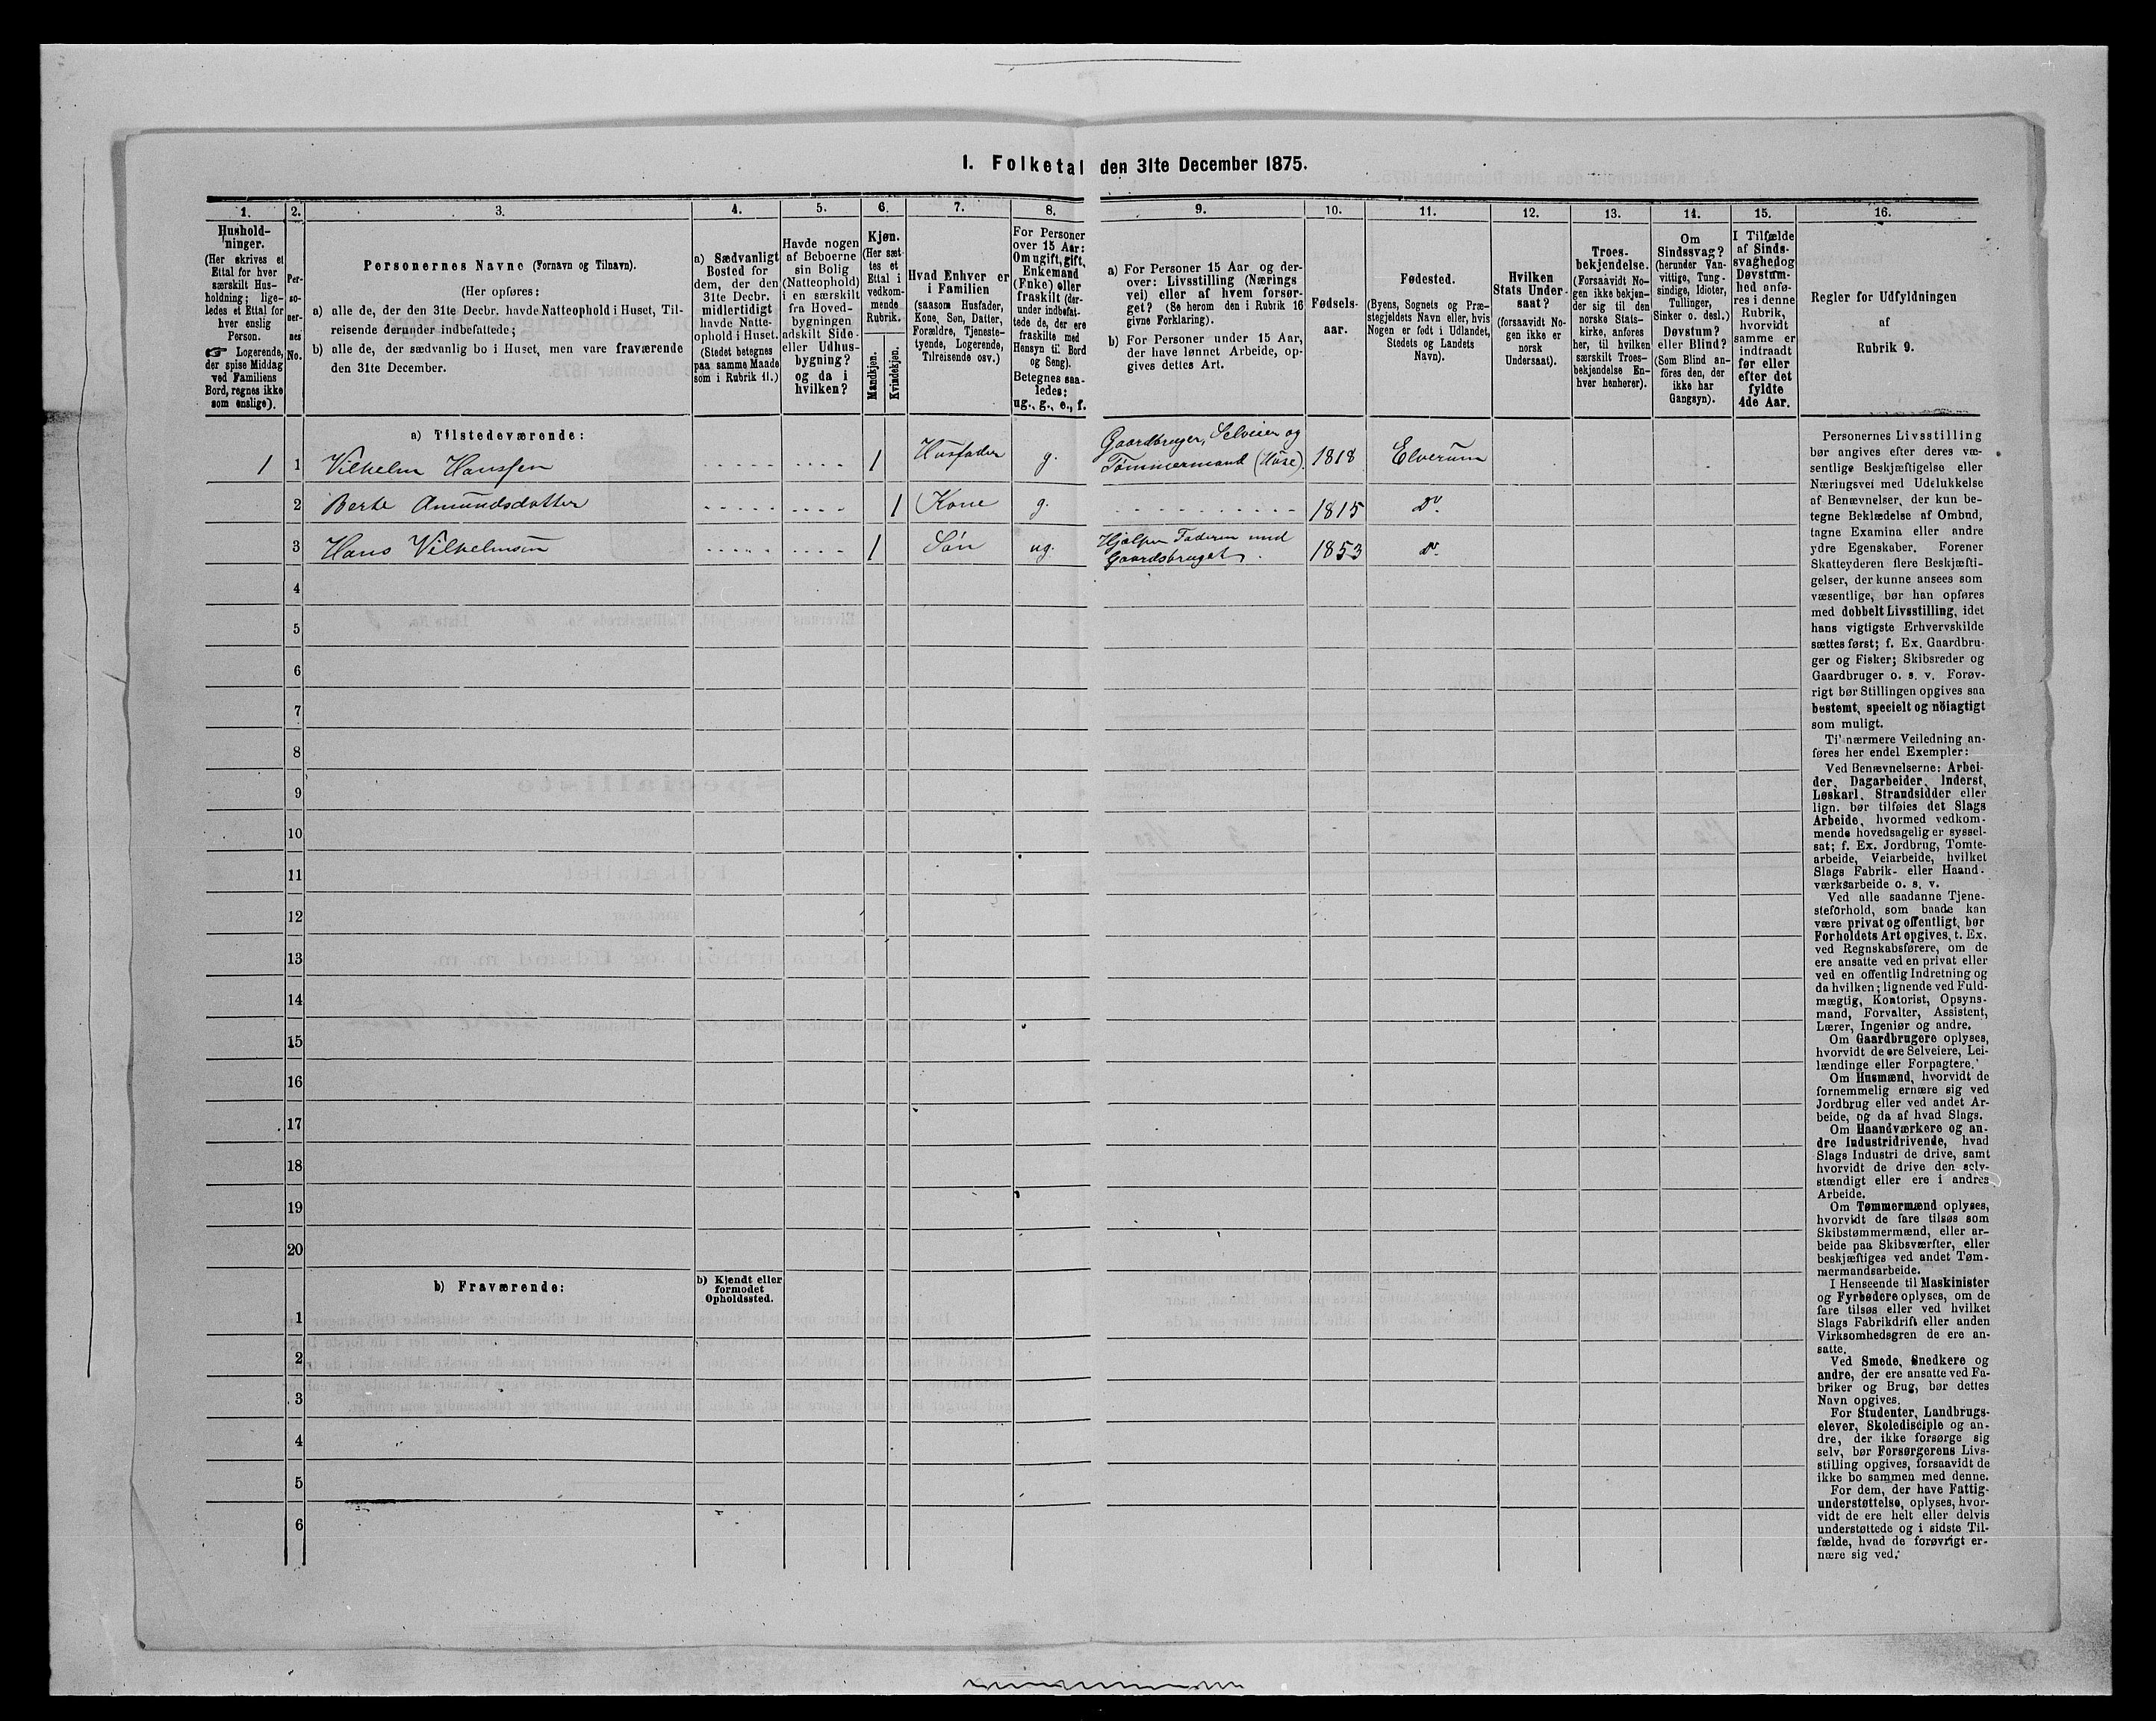 I. Folketal den 31te December 1875.
1.
2.
3.
4.
5.
6.
7.
8.
9.
10.
11.
12.
13.
14.
15.
16.
Hushold-
ninger.
(Her skrives et
Ettal for hver
særskilt Hus-
holdning; lige-
ledes et Ettal for
hver enslig
Person.
☞ Logerende,
der spise Middag
ved Familiens
Bord, regnes ikke
som enslige).
Per-
so-
ner-
nes
No.
Personernes Navne (Fornavn og Tilnavn).
(Her opføres:
a) alle de, der den 31te Decbr. havde Natteophold i Huset, Til-
reisende derunder indbefattede;
b) alle de, der sædvanlig bo i Huset, men vare fraværende
den 31te December.
a) Sædvanligt
Bosted for
dem, der den
31te Decbr.
midlertidigt
havde Natte-
ophold i Huset.
(Stedet betegnes
paa samme Maade
som i Rubrik 11.)
Havde nogen
af Beboerne
sin Bolig
(Natteophold)
i en særskilt
fra Hoved-
bygningen
adskilt Side-
eller Udhus-
bygning?
og da i
hvilken?
Kjøn.
(Her sæt-
tes et
Ettal i
vedkom-
mende
Rubrik.
Mandkjøn.
Kvindekjøn.
Hvad Enhver er
i Familien
(saasom Husfader,
Kone, Søn, Datter,
Forældre, Tjeneste-
tyende, Logerende,
Tilreisende osv.)
For Personer
over 15 Aar:
Om ugift, gift,
Enkemand
(Enke) eller
fraskilt (der-
under indbefat-
tede de, der ere
fraskilte med
Hensyn til Bord
og Seng).
Betegnes saa-
ledes:
ug., g., e., f.
a) For Personer 15 Aar og der-
over: Livsstilling (Nærings
vei) eller af hvem forsør-
get? (Se herom den i Rubrik 16
givne Forklaring).
b) For Personer under 15 Aar,
der have lønnet Arbeide, op-
gives dettes Art.
Fødsels-
aar.
Fødested.
(Byens, Sognets og Præ-
stegjeldets Navn eller, hvis
Nogen er født i Udlandet,
Stedets og Landets
Navn).
Hvilken
Stats Under-
saat?
(forsaavidt No-
gen ikke er
norsk
Undersaat).
Troes-
bekjendelse.
(Forsaavidt No-
gen ikke bekjen-
der sig til den
norske Stats-
kirke, anføres
her, til hvilken
særskilt Troes-
bekjendelse En-
hver henhører).
Om
Sindssvag?
(herunder Van-
vittige, Tung-
sindige, Idioter,
Tullinger,
Sinker o. desl.)
Døvstum?
eller Blind?
(Som Blind an-
føres den, der
ikke har
Gangsyn).
I Tilfælde
af Sinds-
svaghed og
Døvstum-
hed anfø-
res i denne
Rubrik,
hvorvidt
samme er
indtraadt
før eller
efter det
fyldte
4de Aar.
Regler for Udfyldningen
af
Rubrik 9.
a) Tilstedeværende:
1 1 Vilhelm Hanssen 1 Husfader g. Gaardbruger, Selveier og
Tømmermand (Huse). 1818 Elverum
2 Berte Amundsdatter 1 Kone g. 1815 Do.
3 Hans Vilhelmsen 1 Søn ug. Hjælper Faderen med
Gaardsbruget. 1853 Do.
4
5
6
7
8
9
10
11
12
13
14
15
16
17
18
19
20
b) Fraværende:
b) Kjendt eller
formodet
Opholdssted.
1
2
3
4
5
6
Personernes Livsstilling
bør angives efter deres væ-
sentlige Beskjæftigelse eller
Næringsvei med Udelukkelse
af Benævnelser, der kun be-
tegne Beklædelse af Ombud,
tagne Examina eller andre
ydre Egenskaber. Forener
Skatteyderen flere Beskjæfti-
gelser, der kunne ansees som
væsentlige, bør han opføres
med dobbelt Livsstilling, idet
hans vigtigste Erhvervskilde
sættes først; f. Ex. Gaardbru-
ger og Fisker; Skibsreder og
Gaardbruger o. s. v. Forøv-
rigt bør Stillingen opgives saa
bestemt, specielt og nöiagtigt
som muligt.
Til nærmere Veiledning an-
føres her endel Exempler:
Ved Benævnelserne: Arbei-
der, Dagarbeider, Inderst,
Løskarl, Strandsidder eller
lign. bør tilføies det Slags
Arbeide, hvormed vedkom-
mende hovedsagelig er syssel-
sat; f. Ex. Jordbrug, Tomte-
arbeide, Veiarbeide, hvilket
Slags Fabrik- eller Haand-
værksarbeide o. s. v.
Ved alle saadanne Tjene-
steforhold, som baade kan
være privat og offentligt, bør
Forholdets Art opgives, t. Ex.
ved Regnskabsførere, om de
ere ansatte ved en privat eller
ved en offentlig Indretning og
da hvilken; lignende ved Fuld-
mægtig, Kontorist, Opsyns-
mand, Forvalter, Assistent,
Lærer, Ingeniør og andre.
Om Gaardbrugere oplyses,
hvorvidt de ere Selveiere, Lei-
lændinge eller Forpagtere.
Om Husmænd, hvorvidt de
fornemmelig ernære sig ved
Jordbrug eller ved andet Ar-
beide, og da af hvad Slags.
Om Haandværkere og an-
dre Industridrivende, hvad
Slags Industri de drive, samt
hvorvidt de drive den selv-
stændigt eller ere i andres
Arbeide.
Om Tømmermænd oplyses,
hvorvidt de fare tilsøs som
Skibstømmermænd, eller ar-
beide paa Skibsværfter, eller
beskjæftiges ved andet Tøm-
mermandsarbeide.
I Henseende til Maskinister
og Fyrbødere oplyses, om de
fare tilsøs eller ved hvilket
Slags Fabrikdrift eller anden
Virksomhedsgren de ere an-
satte.
Ved Smede, Snedkere og
andre, der ere ansatte ved Fa-
briker og Brug, bør dettes
Navn opgives.
For Studenter, Landbrugs-
elever, Skoledisciple og an-
dre, der ikke forsørge sig
selv, bør Forsørgerens Livs-
stilling opgives, forsaavidt de
ikke bo sammen med denne.
For dem, der have Fattig-
understøttelse, oplyses, hvor-
vidt de ere helt eller delvis
understøttede og i sidste Til-
fælde, hvad de forøvrigt er-
nære sig ved.